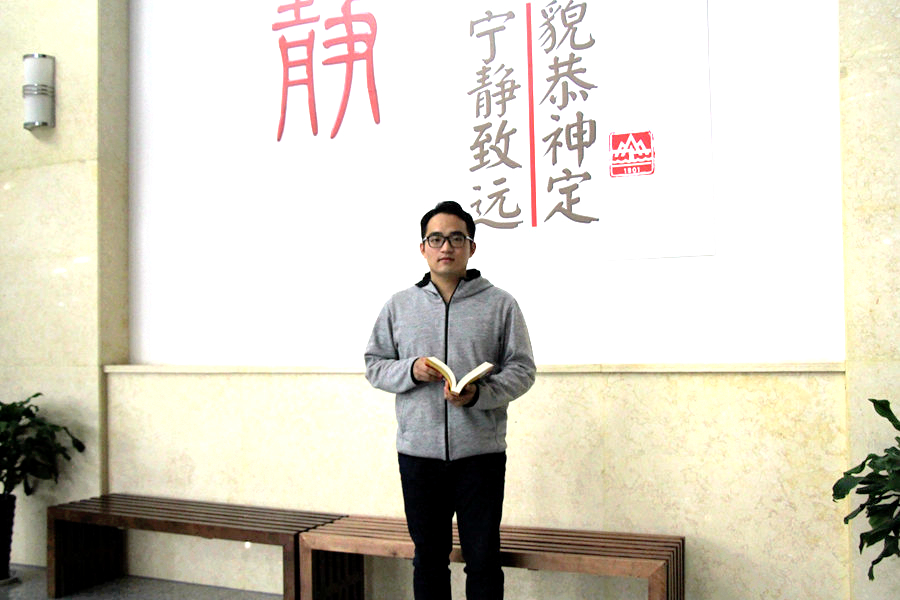 静
貌恭神定
宁静致远
1901